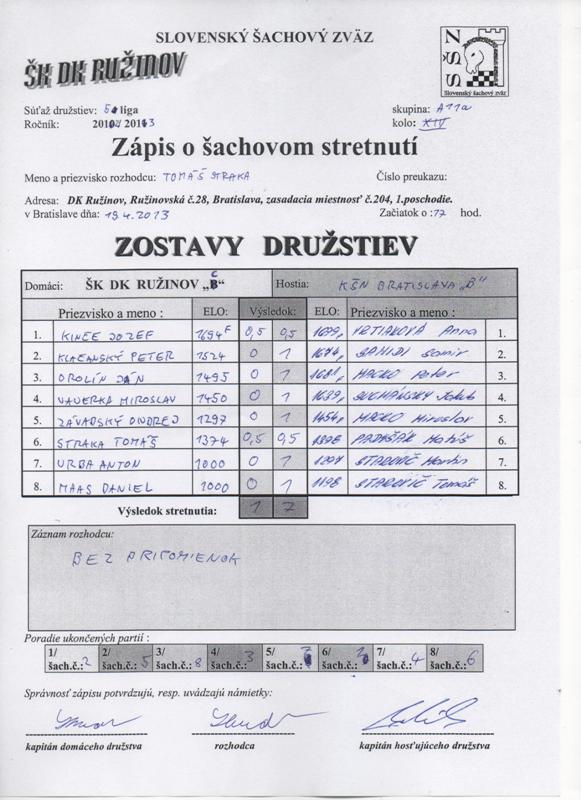 SLOVENSKÝ ŠACHOVÝ ZVÄZ
ŠK DK RUŽINOV
SŠZ
Slovenský šachový zväz
Súťaž družstiev: 5. liga
skupina: A11a
Ročník: 2012/ 2013
kolo: XIV
Zápis o šachovom stretnutí
Meno a priezvisko rozhodcu: TOMÁŠ STRAKA
Číslo preukazu:
Adresa: DK Ružinov, Ružinovská č.28, Bratislava, zasadacia miestnosť č.204, 1.poschodie.
v Bratislave dňa: 19.4.2013
Začiatok o :17 hod.
ZOSTAVY DRUŽSTIEV
Domáci: ŠK DK RUŽINOV „C“ Hostia: KŠN BRATISLAVA „B“
Priezvisko a meno : ELO: Výsledok: ELO: Priezvisko a meno :
1. JOZEF 1694F 0,5 0,5 Anna 1.
2. PETER 1524 0 1 Samir 2.
3. OROLÍN JÁN 1495 0 1 HACKO Peter 3.
4. VAVERKA MIROSLAV 1450 0 1 1639, SUCHANSKÝ Jakub 4.
5. ZÁVADSKÝ ONDREJ 1297 0 1 1454, HACKO Miroslav 5.
6. STRAKA TOMÁŠ 1374 0,5 0,5 Matúš 6.
7. VRBA ANTON 1000 0 1 Martin 7.
8. MAAS DANIEL 1000 0 1 1198 Tomáš 8.
Výsledok stretnutia: 1 7
Záznam rozhodcu:
BEZ PRIPOMIENOK
Poradie ukončených partií :
1/ 2/ 3/ 4/ 5/ 6/ 7/ 8/
šach.č.: 2 šach.č.: 5 šach.č.: 8 šach.č.: 3 šach.č.: šach.č.: šach.č.: 4 šach.č.: 6
Správnosť zápisu potvrdzujú, resp. uvádzajú námietky:
kapitán domáceho družstva rozhodca kapitán hosťujúceho družstva